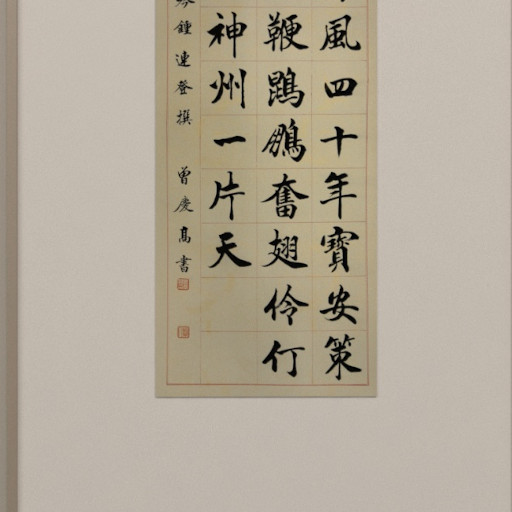 風四十年寶安策
鞭鵾鵬奮翅伶仃
神州一片天
鍾連登撰 曾慶高書